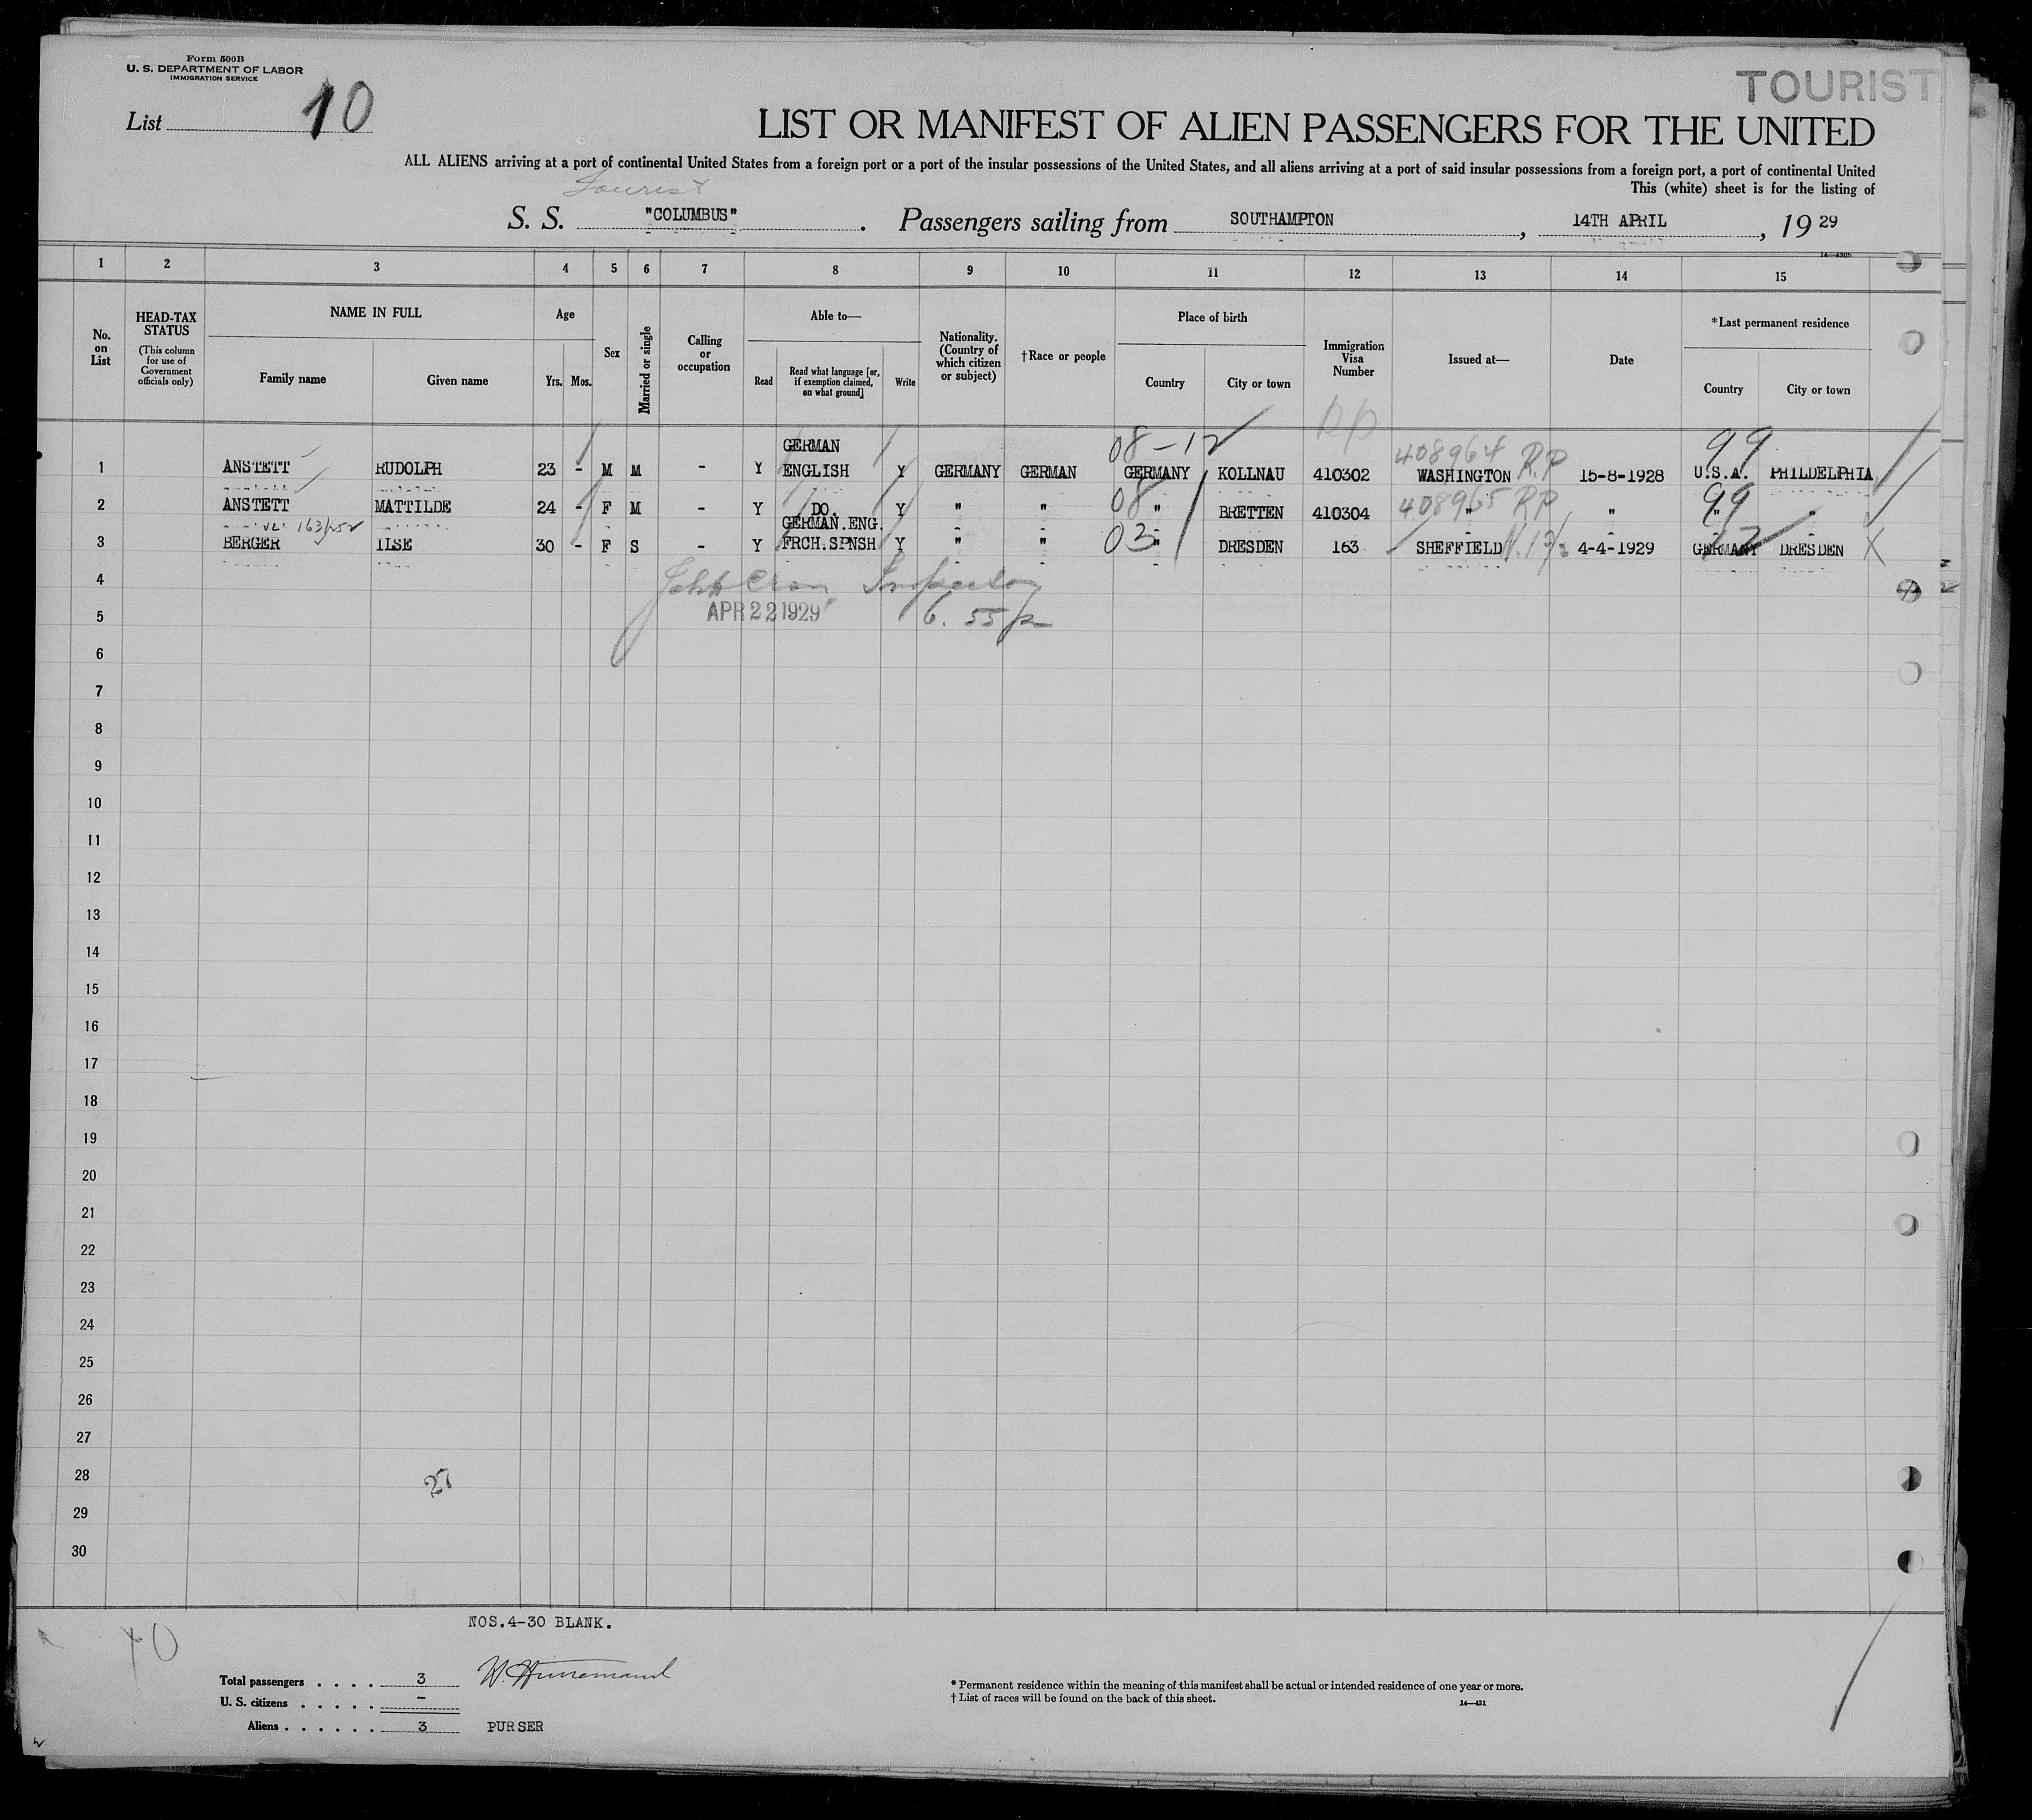 Form 500B
U. S. DEPARTMENT OF LABOR
IMMIGRATION SERVICE
TOURIST
List 10
LIST OR MANIFEST OF ALIEN PASSENGERS FOR THE UNITED
ALL ALIENS arriving at a port of continental United States from a foreign port or a port of the insular possessions of the United States, and all aliens arriving at a port of said insular possessions from a foreign port, a port of continental United
This (white) sheet is for the listing of
Tourist
S. S. "COLUMBUS". Passengers sailing from SOUTHAMPTON, 14TH APRIL, 1929
14—4305
1 2 3 4 5 6 7 8 9 10 11 12 13 14 15
No. on List
HEAD-TAX STATUS
(This column for use of Government officials only)
NAME IN FULL
Family name Given name
Age
Yrs. Mos.
Sex
Married or single
Calling or occupation
Able to—
Read
Read what language [or, if exemption claimed, on what ground]
Write
Nationality. (Country of which citizen or subject)
†Race or people
Place of birth
Country City or town
Immigration Visa Number
Issued at—
Date
*Last permanent residence
Country City or town
GERMAN 08-12 408964 R.P 99
1 ANSTETT RUDOLPH 23 - M M - Y ENGLISH Y GERMANY GERMAN GERMANY KOLLNAU 410302 WASHINGTON 15-8-1928 U.S.A. PHILDELPHIA
08 408965 RP 99
2 ANSTETT MATTILDE 24 - F M - Y DO. Y " " " BRETTEN 410304 " " " "
163/252 GERMAN.ENG. 03
3 BERGER ILSE 30 - F S - Y FRCH.SPNSH Y " " " DRESDEN 163 SHEFFIELD 4-4-1929 GERMANY DRESDEN X
4 Inspector
5 APR 22 1929 6.55 p
6
7
8
9
10
11
12
13
14
15
16
17
18
19
20
21
22
23
24
25
26
27
28
29
30
NOS.4-30 BLANK.
Total passengers . . . . 3
U. S. citizens . . . . . -
Aliens . . . . . . 3 PURSER
* Permanent residence within the meaning of this manifest shall be actual or intended residence of one year or more.
† List of races will be found on the back of this sheet.
14—431